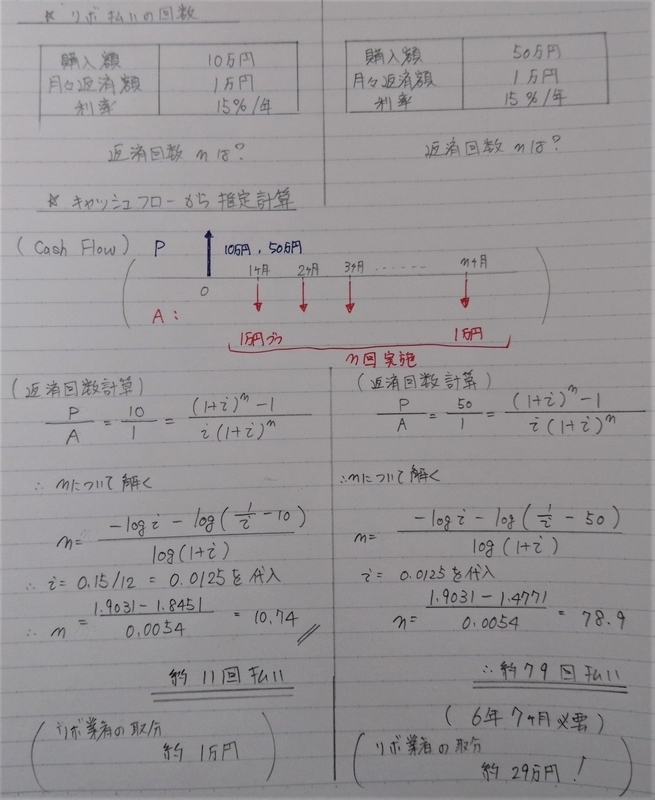 ☆ リボ払いの回数
購入額 10万円
月々返済額 1万円
利率 15%/年
返済回数 nは?
購入額 50万円
月々返済額 1万円
利率 15%/年
返済回数 nは?
☆ キャッシュフローから推定計算
(Cash Flow) P 10万円, 50万円
0 1ヶ月 2ヶ月 3ヶ月 ...... nヶ月
A: 1万円づつ 1万円
n回実施
(返済回数計算)
P/A = 10/1 = ((1+i)^n - 1)/(i(1+i)^n)
∴ nについて解く
n = (-log i - log(1/i - 10))/log(1+i)
∴ i = 0.15/12 = 0.0125を代入
∴ n = (1.9031 - 1.8451)/0.0054 = 10.74
約11回払い
(リボ業者の取分
約1万円)
(返済回数計算)
P/A = 50/1 = ((1+i)^n - 1)/(i(1+i)^n)
∴ nについて解く
n = (-log i - log(1/i - 50))/log(1+i)
i = 0.0125を代入
n = (1.9031 - 1.4771)/0.0054 = 78.9
∴ 約79回払い
(6年7ヶ月必要)
(リボ業者の取分
約29万円!)